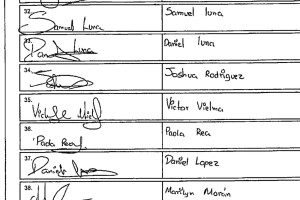 32. Samuel Luna Samuel luna
33. Luna Daniel luna
34. Joshua Rodriguez
35. Victor Vielma
36. Paola Rea Paola Rea
37. Daniel Daniel Lopez
38. Marilyn Morán